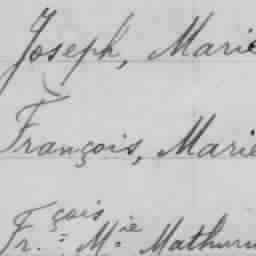 Joseph, Marie
François, Marie
Fr.çois M.ie Mathurin